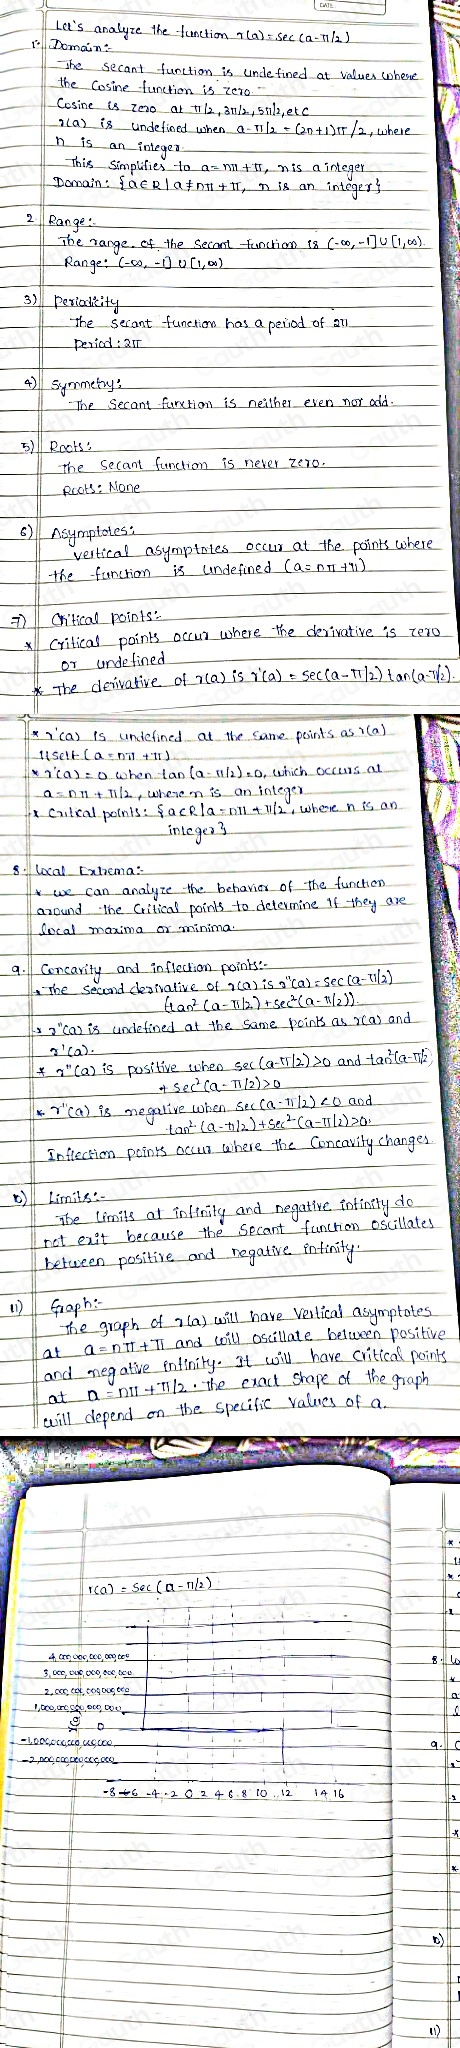 DATE
Let's analyze the function r(a) = sec(a-π/2)
1. Domain:-
The secant function is undefined at values where
the cosine function is zero.
Cosine is zero at π/2, 3π/2, 5π/2, etc
r(a) is undefined when a-π/2 = (2n+1)π/2, where
n is an integer.
This simplifies to a = nπ+π, n is a integer
Domain: {a∈R | a ≠ nπ+π, n is an integer}
2 Range:-
The range of the secant function is (-∞, -1] ∪ [1, ∞).
Range: (-∞, -1] ∪ [1, ∞)
3) Periodicity
The secant function has a period of 2π
period: 2π
4) Symmetry:
The Secant function is neither even nor odd.
5) Roots:
The Secant function is never zero.
Roots: None
6) Asymptotes:
vertical asymptotes occur at the points where
the function is undefined (a = nπ+π)
7) Critical points:-
* Critical points occur where the derivative is zero
or undefined
* The derivative of r(a) is r'(a) = sec(a-π/2) tan(a-π/2).
* r'(a) is undefined at the same points as r(a)
itself (a = nπ + π)
* r'(a) = 0 when tan(a-π/2) = 0, which occurs at
a = nπ + π/2, where n is an integer
* critical points: {a∈R | a = nπ + π/2, where n is an
integer}
8. Local Extrema:-
* we can analyze the behavior of the function
around the critical points to determine if they are
local maxima or minima.
9. Concavity and inflection points:-
* The second derivative of r(a) is r"(a) = sec(a-π/2)
(tan²(a-π/2) + sec²(a-π/2)).
* r"(a) is undefined at the same points as r(a) and
r'(a).
* r"(a) is positive when sec(a-π/2) >0 and tan²(a-π/2)
+ sec²(a-π/2) >0
* r"(a) is negative when sec(a-π/2) <0 and
tan²(a-π/2) + sec²(a-π/2) >0.
Inflection points occur where the Concavity changes
10) Limits:-
The limits at infinity and negative infinity do
not exit because the Secant function oscillates
between positive and negative infinity.
11) Graph:-
The graph of r(a) will have vertical asymptotes
at a = nπ+π and will oscillate between positive
and negative infinity. It will have critical points
at a = nπ + π/2. The exact shape of the graph
will depend on the specific values of a.
r(a) = Sec(a-π/2)
4,000,000,000,000
3,000,000,000,000
2,000,000,000,000
1,000,000,000,000
0
-1,000,000,000,000
-2,000,000,000,000
-8 -6 -4 -2 0 2 4 6 8 10 12 14 16
8.
9.
10)
11)